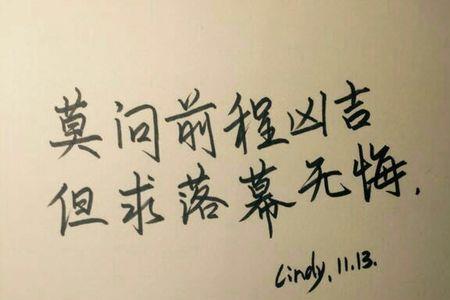 莫问前程凶吉
但求落幕无悔.
Cindy.11.13.